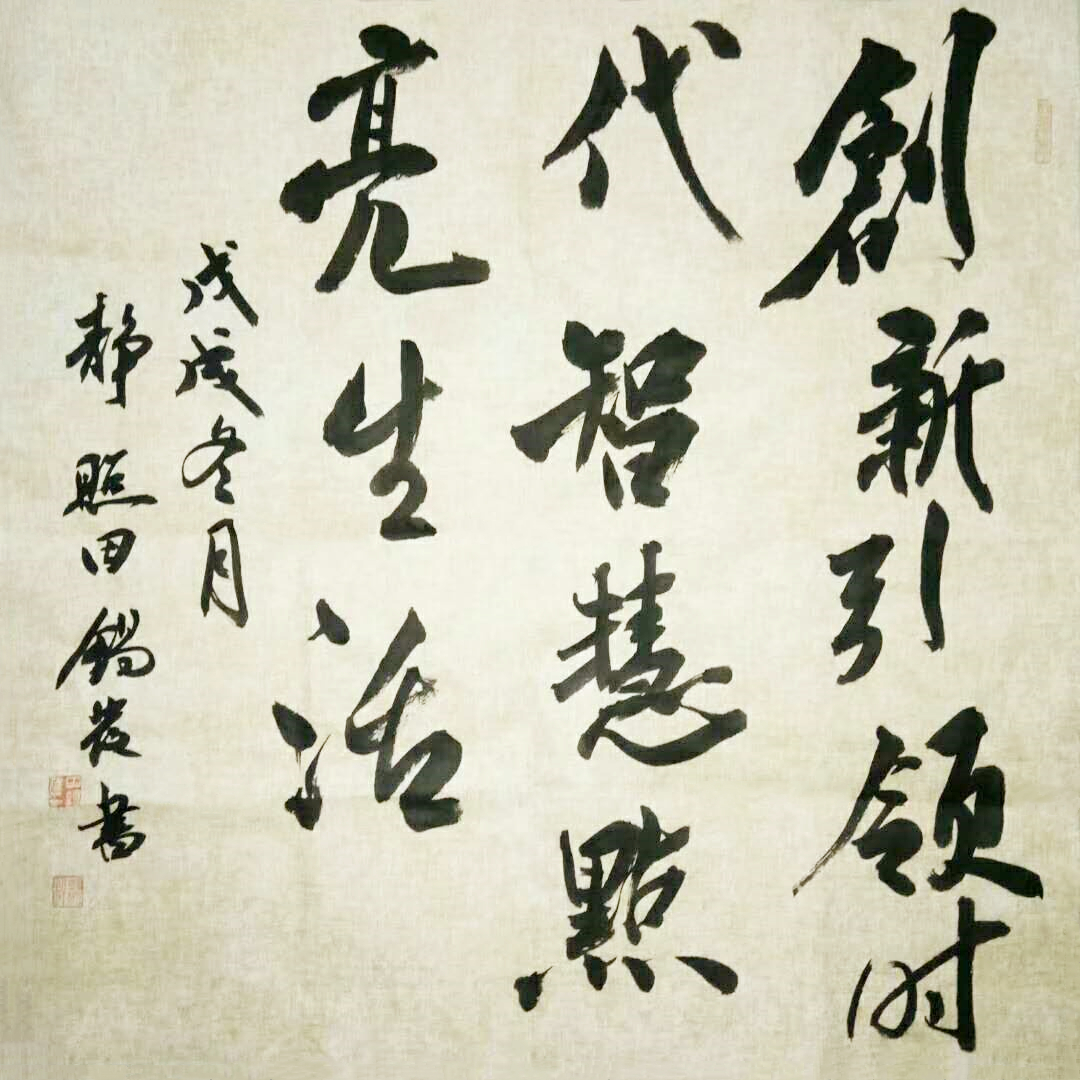 創新引領时
代智慧點
亮生活
戊戌冬月
静照田錫發書